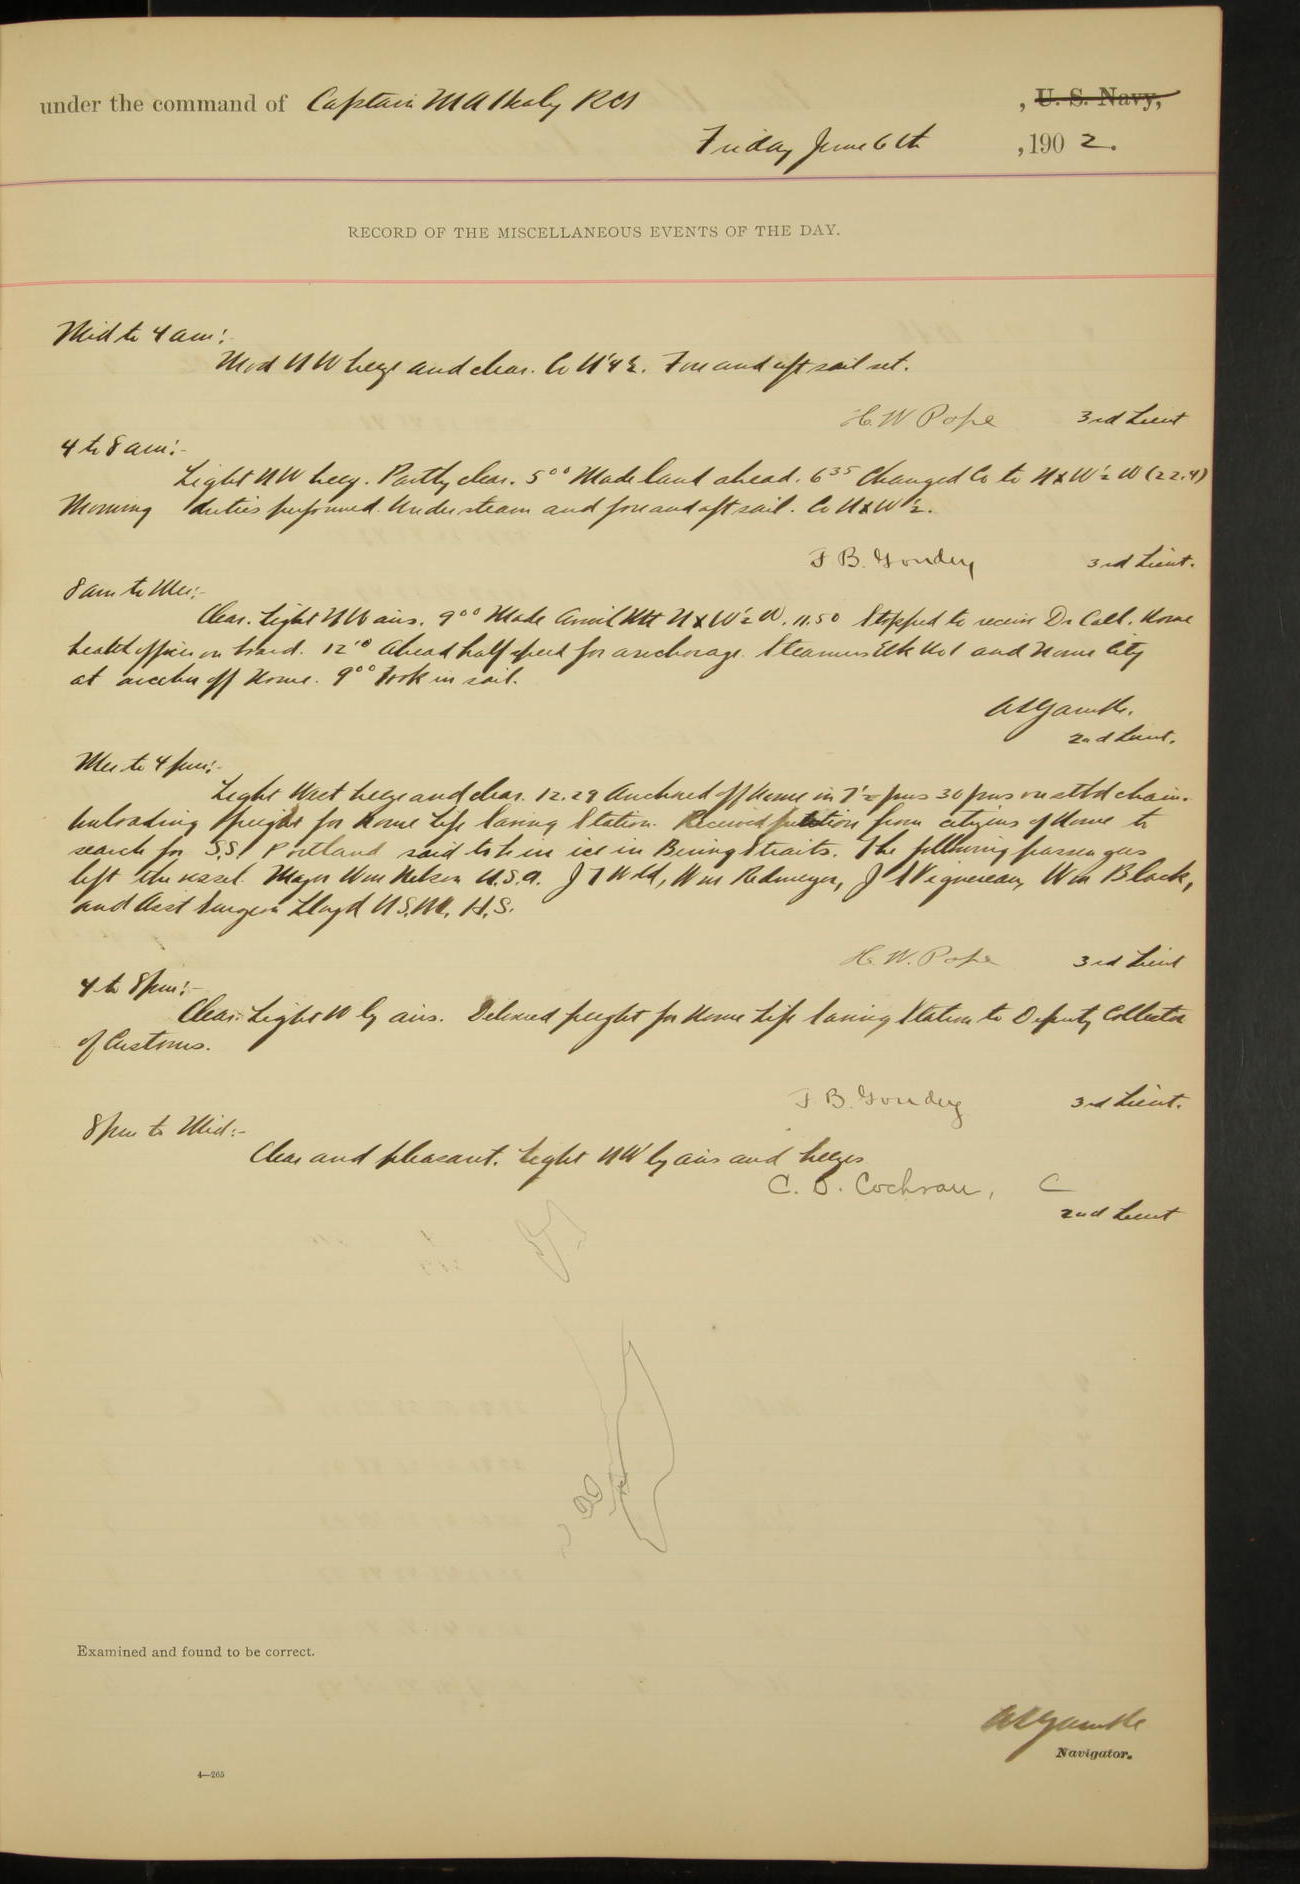 under the command of Captain M A Healy RCS , U. S. Navy,
Friday June 6th , 190 2.
RECORD OF THE MISCELLANEOUS EVENTS OF THE DAY.
Mid to 4 am:-
Mod NW breeze and clear. Co N'4½. Fore and aft sail set.
H. W Pope 3rd Lieut
4 to 8 am:-
Light NW breeze. Partly clear. 5⁰⁰ Made land ahead. 6³⁵ Changed Co to NxW½W (22.4)
Morning duties performed. Under steam and fore and aft sail. Co NxW½.
3rd Lieut.
8 am to Mer:-
Clear. Light NW airs. 9⁰⁰ Made Anvil Mt NxW½W. 11.50 Stopped to receive Dr Call. Nome
health officer on board. 12¹⁰ Ahead half speed for anchorage. Steamers Elk No 1 and Nome City
at anchor off Nome. 9⁰⁰ Took in sail.
2nd Lieut.
Mer to 4 pm:-
Light West breeze and clear. 12.29 Anchored off Nome in 7½ fms 30 fms on stbd chain.
Unloading freight for Nome Life Saving Station. Received petition from citizens of Nome to
search for S.S. Portland said to be in ice in Bering Straits. The following passengers
left the vessel. Major Wm Nelson U.S.A. Wm Redmeyer, Wm Black,
and Asst Surgeon Lloyd U S. M. H. S.
H. W. Pope 3rd Lieut
4 to 8 pm:-
Clear. Light W ly airs. Delivered freight for Nome Life Saving Station to Deputy Collector
of Customs.
3rd Lieut.
8 pm to Mid:-
Clear and pleasant. Light NW ly airs and breezes
C. S. Cochran, C
2nd Lieut
Examined and found to be correct.
Navigator.
4—265